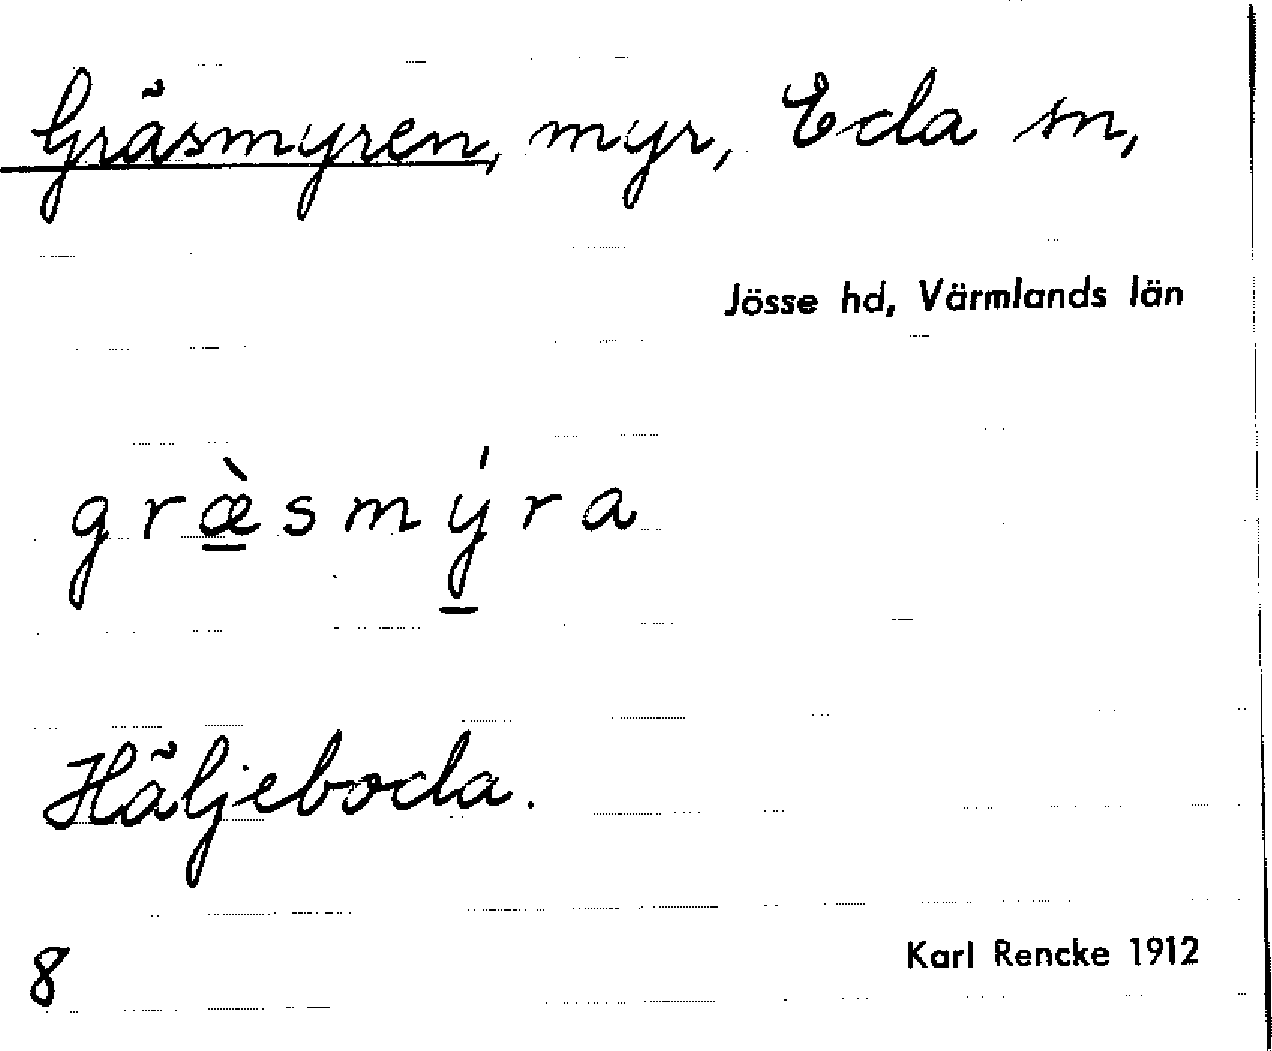 Gräsmyren, myr, Eda sn,
Jösse hd, Värmlands län
græ̱̀smý̱ra
Häljeboda.
8
Karl Rencke 1912